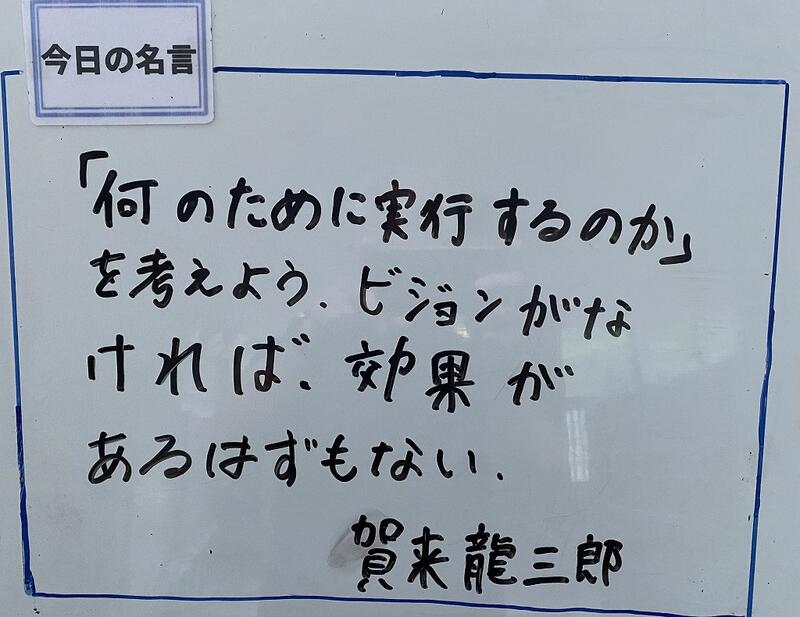 今日の名言
「何のために実行するのか」
を考えよう.ビジョンがな
ければ.効果が
あるはずもない.
賀来龍三郎